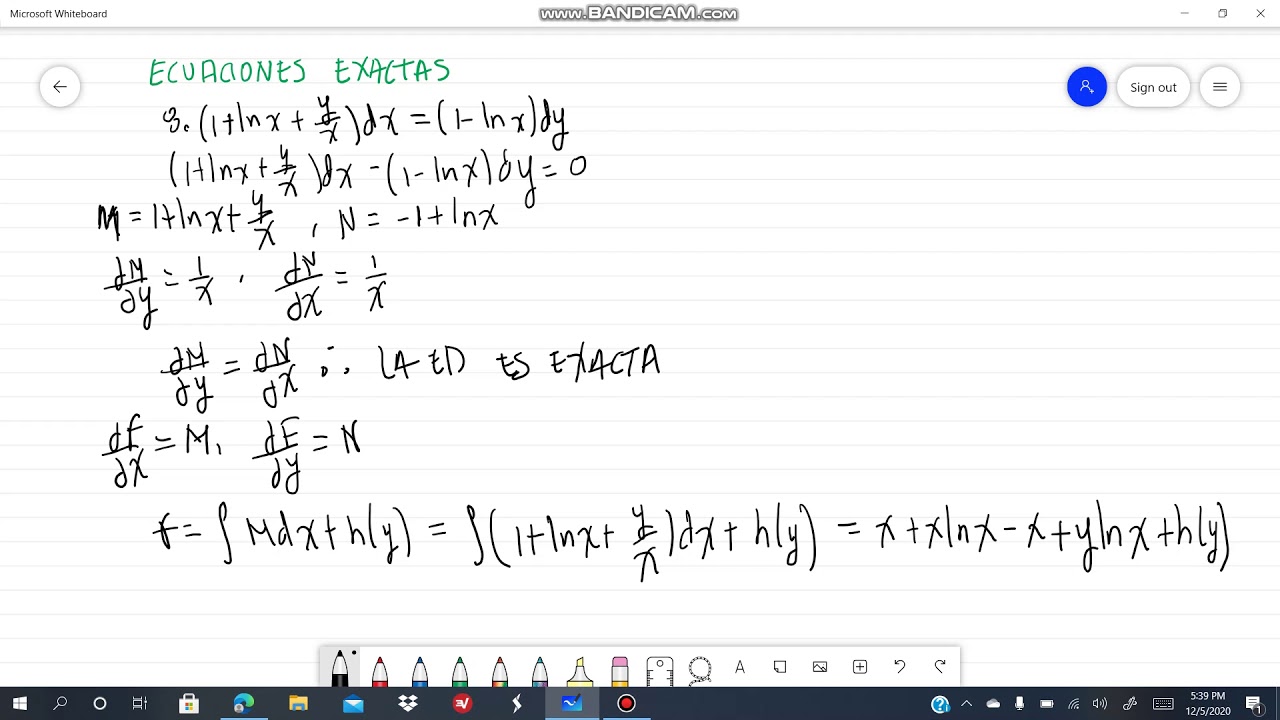 Microsoft Whiteboard
www.BANDICAM.com
ECUACIONES EXACTAS
Sign out
3. (1+lnx + y/x)dx = (1-lnx)dy
(1+lnx + y/x)dx - (1-lnx)dy = 0
M = 1+lnx+ y/x , N = -1+lnx
∂M/∂y = 1/x , ∂N/∂x = 1/x
∂M/∂y = ∂N/∂x ∴ LA ED ES EXACTA
∂F/∂x = M, ∂F/∂y = N
F = ∫Mdx+h(y) = ∫(1+lnx+ y/x)dx+h(y) = x+xlnx-x+ylnx+h(y)
A
5:39 PM
12/5/2020